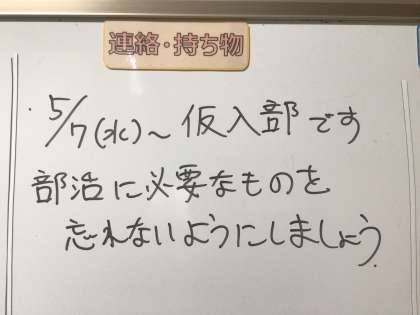 連絡・持ち物
・5/7(水)~仮入部です
部活に必要なものを
忘れないようにしましょう.